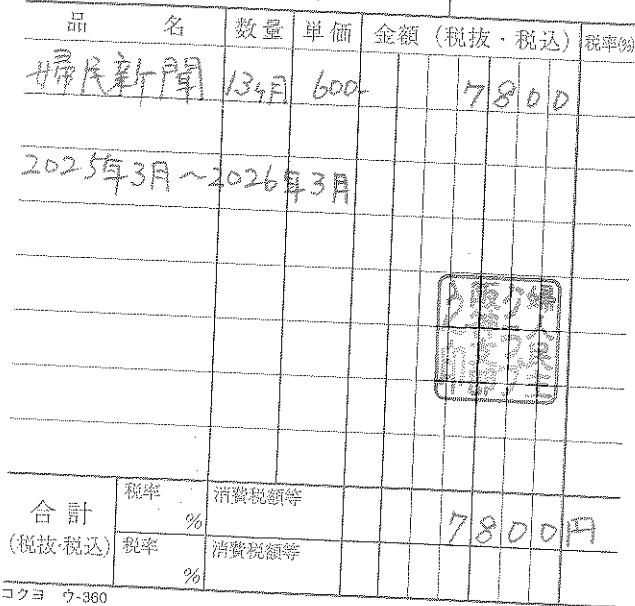 品名 数量 単価 金額 (税抜・税込) 税率(%)
婦民新聞 13ヶ月 600- 7800
2025年3月～2026年3月
合計 税率 % 消費税額等 7800円
(税抜・税込) 税率 % 消費税額等
コクヨ ウ-360